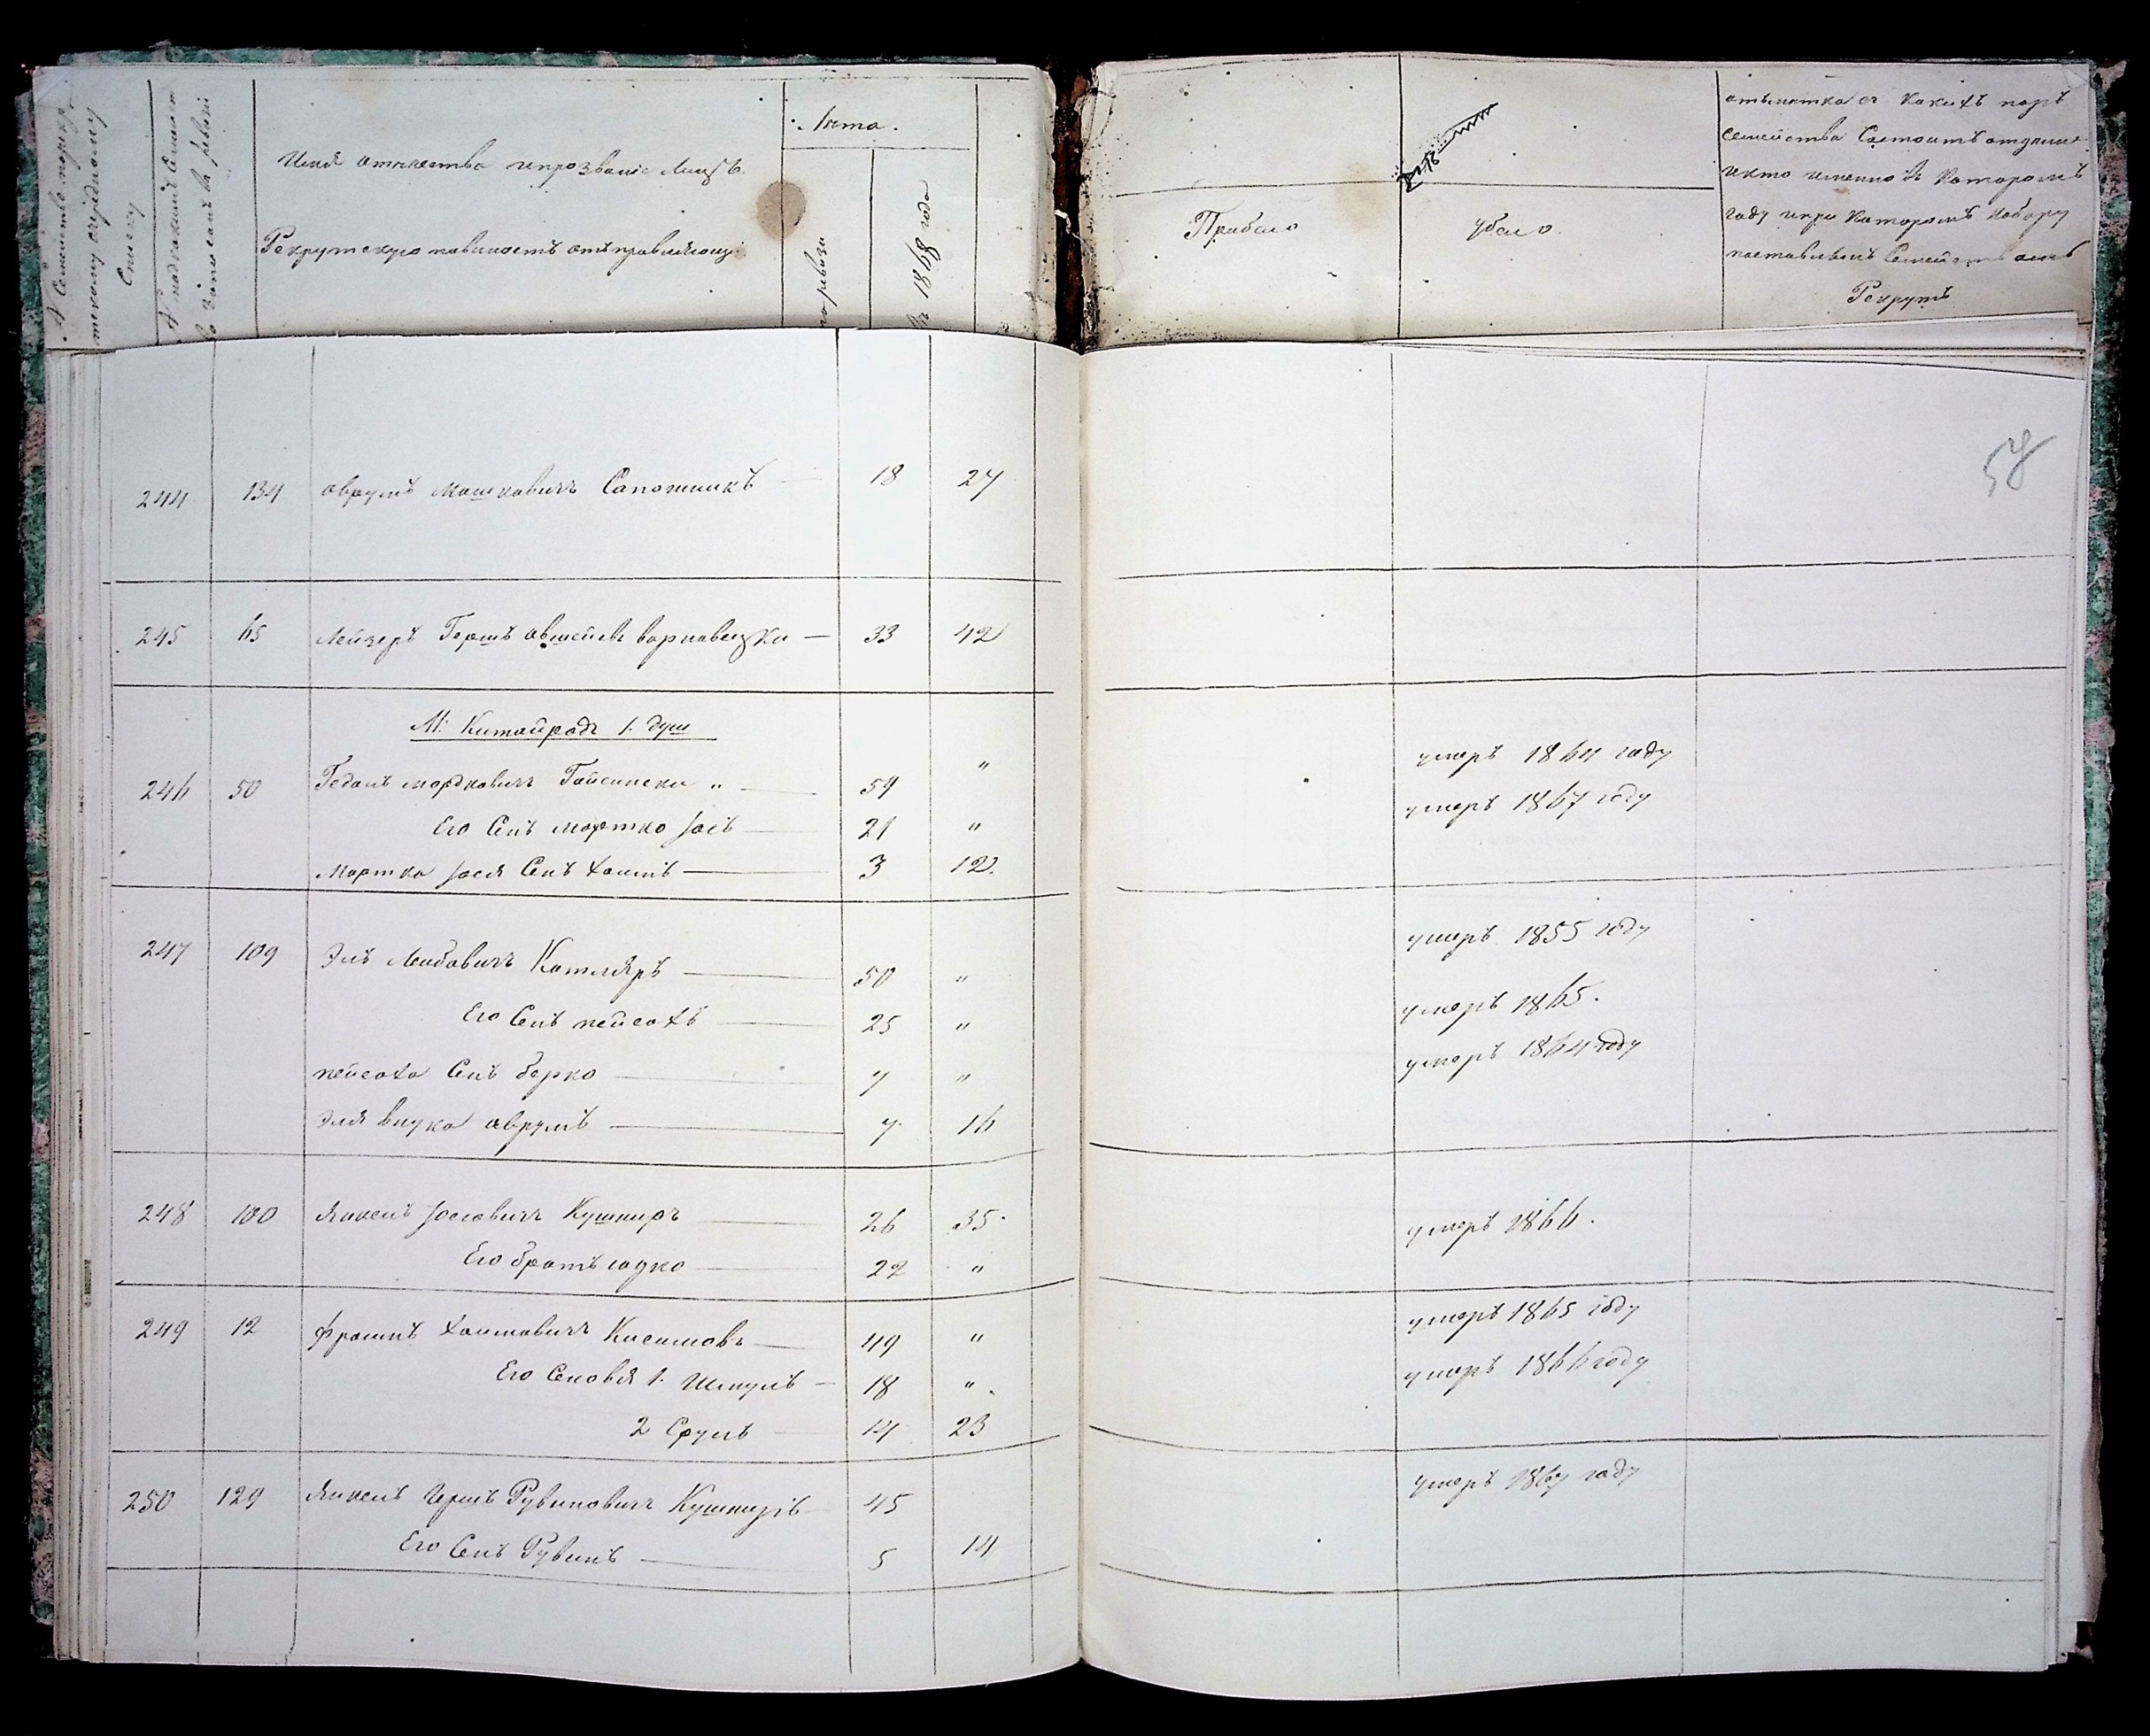 № Семейство по рекр
утскому очередному
Списку
№ под какимъ Семейст
во Записанъ в ревизи
Имя отчество и прозваніе Лицъ.
Рекрутскую повиность отъправляющ:
Лета.
по ревизи
1868 года
Прибыло
убыло
отъметка съ Какихъ поръ
Семейства Состоитъ отдельн
и кто именно въ Которомъ
году и при Которомъ Набору
поставилъ Семействомъ
Рекрутъ
57
244 134 аврумъ Мошковичъ Сапожникъ 18 27
245 65 Лейзеръ Гершъ авшейев варнавецки 33 42
М: Китайродъ 1. душ
246 50 Гедаль мордковичъ Гайсински " 59 " умеръ 1864 году
Его Сенъ мортко Іосъ 21 " умеръ 1867 году
Мортка Іося Сенъ хаимъ 3 12.
247 109 Эль Лейбовичъ Котляръ 50 " умеръ 1855 году
Его Сенъ пейсахъ 25 " умеръ 1865.
пейсаха Сенъ берко 7 " умеръ 1864 году
Эля внука аврумъ 7 16
248 100 Янкель Іосіовичъ Кушниръ 26 35.
Его братъ юдко 22 " умеръ 1866.
249 12 фроимъ хаимовичъ Кисилiовъ 49 " умеръ 1865 году
Его Сеновя 1. Шмулъ 18 " умеръ 1866 году
2 Срулъ 14 23
250 129 Янкель Гершъ Рувиновичъ Кушниръ 45 умеръ 1867 году
Его Сенъ Рувинъ 5 14